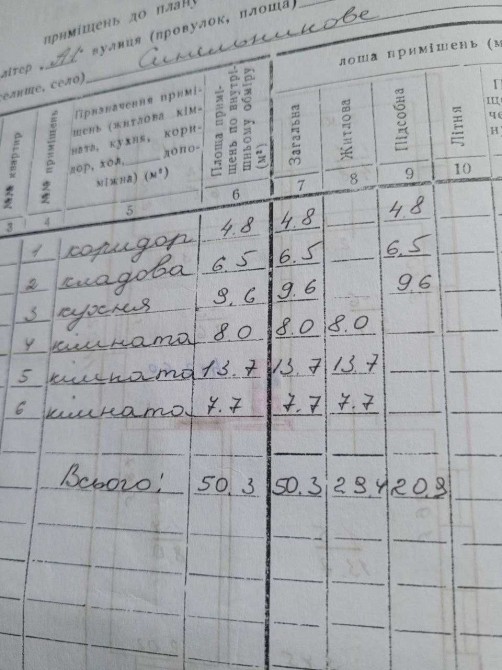 приміщень до плану
літер „А" вулиця (провулок, площа)
селище, село) Синельникове
№№ квартир
№№ приміщень
Призначення примі-
щень (житлова кім-
ната, кухня, кори-
дор, хол, допо-
міжна) (м²)
Площа примі-
щень по внутрі-
шньому обміру
(м²)
лоша приміщень (м
Загальна
Житлова
Підсобна
Літня
3 4 5 6 7 8 9 10
1 коридор 4.8 4.8 4.8
2 кладова 6.5 6.5 6.5
3 кухня 9.6 9.6 9.6
4 кімната 8.0 8.0 8.0
5 кімната 13.7 13.7 13.7
6 кімната 7.7 7.7 7.7
Всього: 50.3 50.3 29.4 20.9